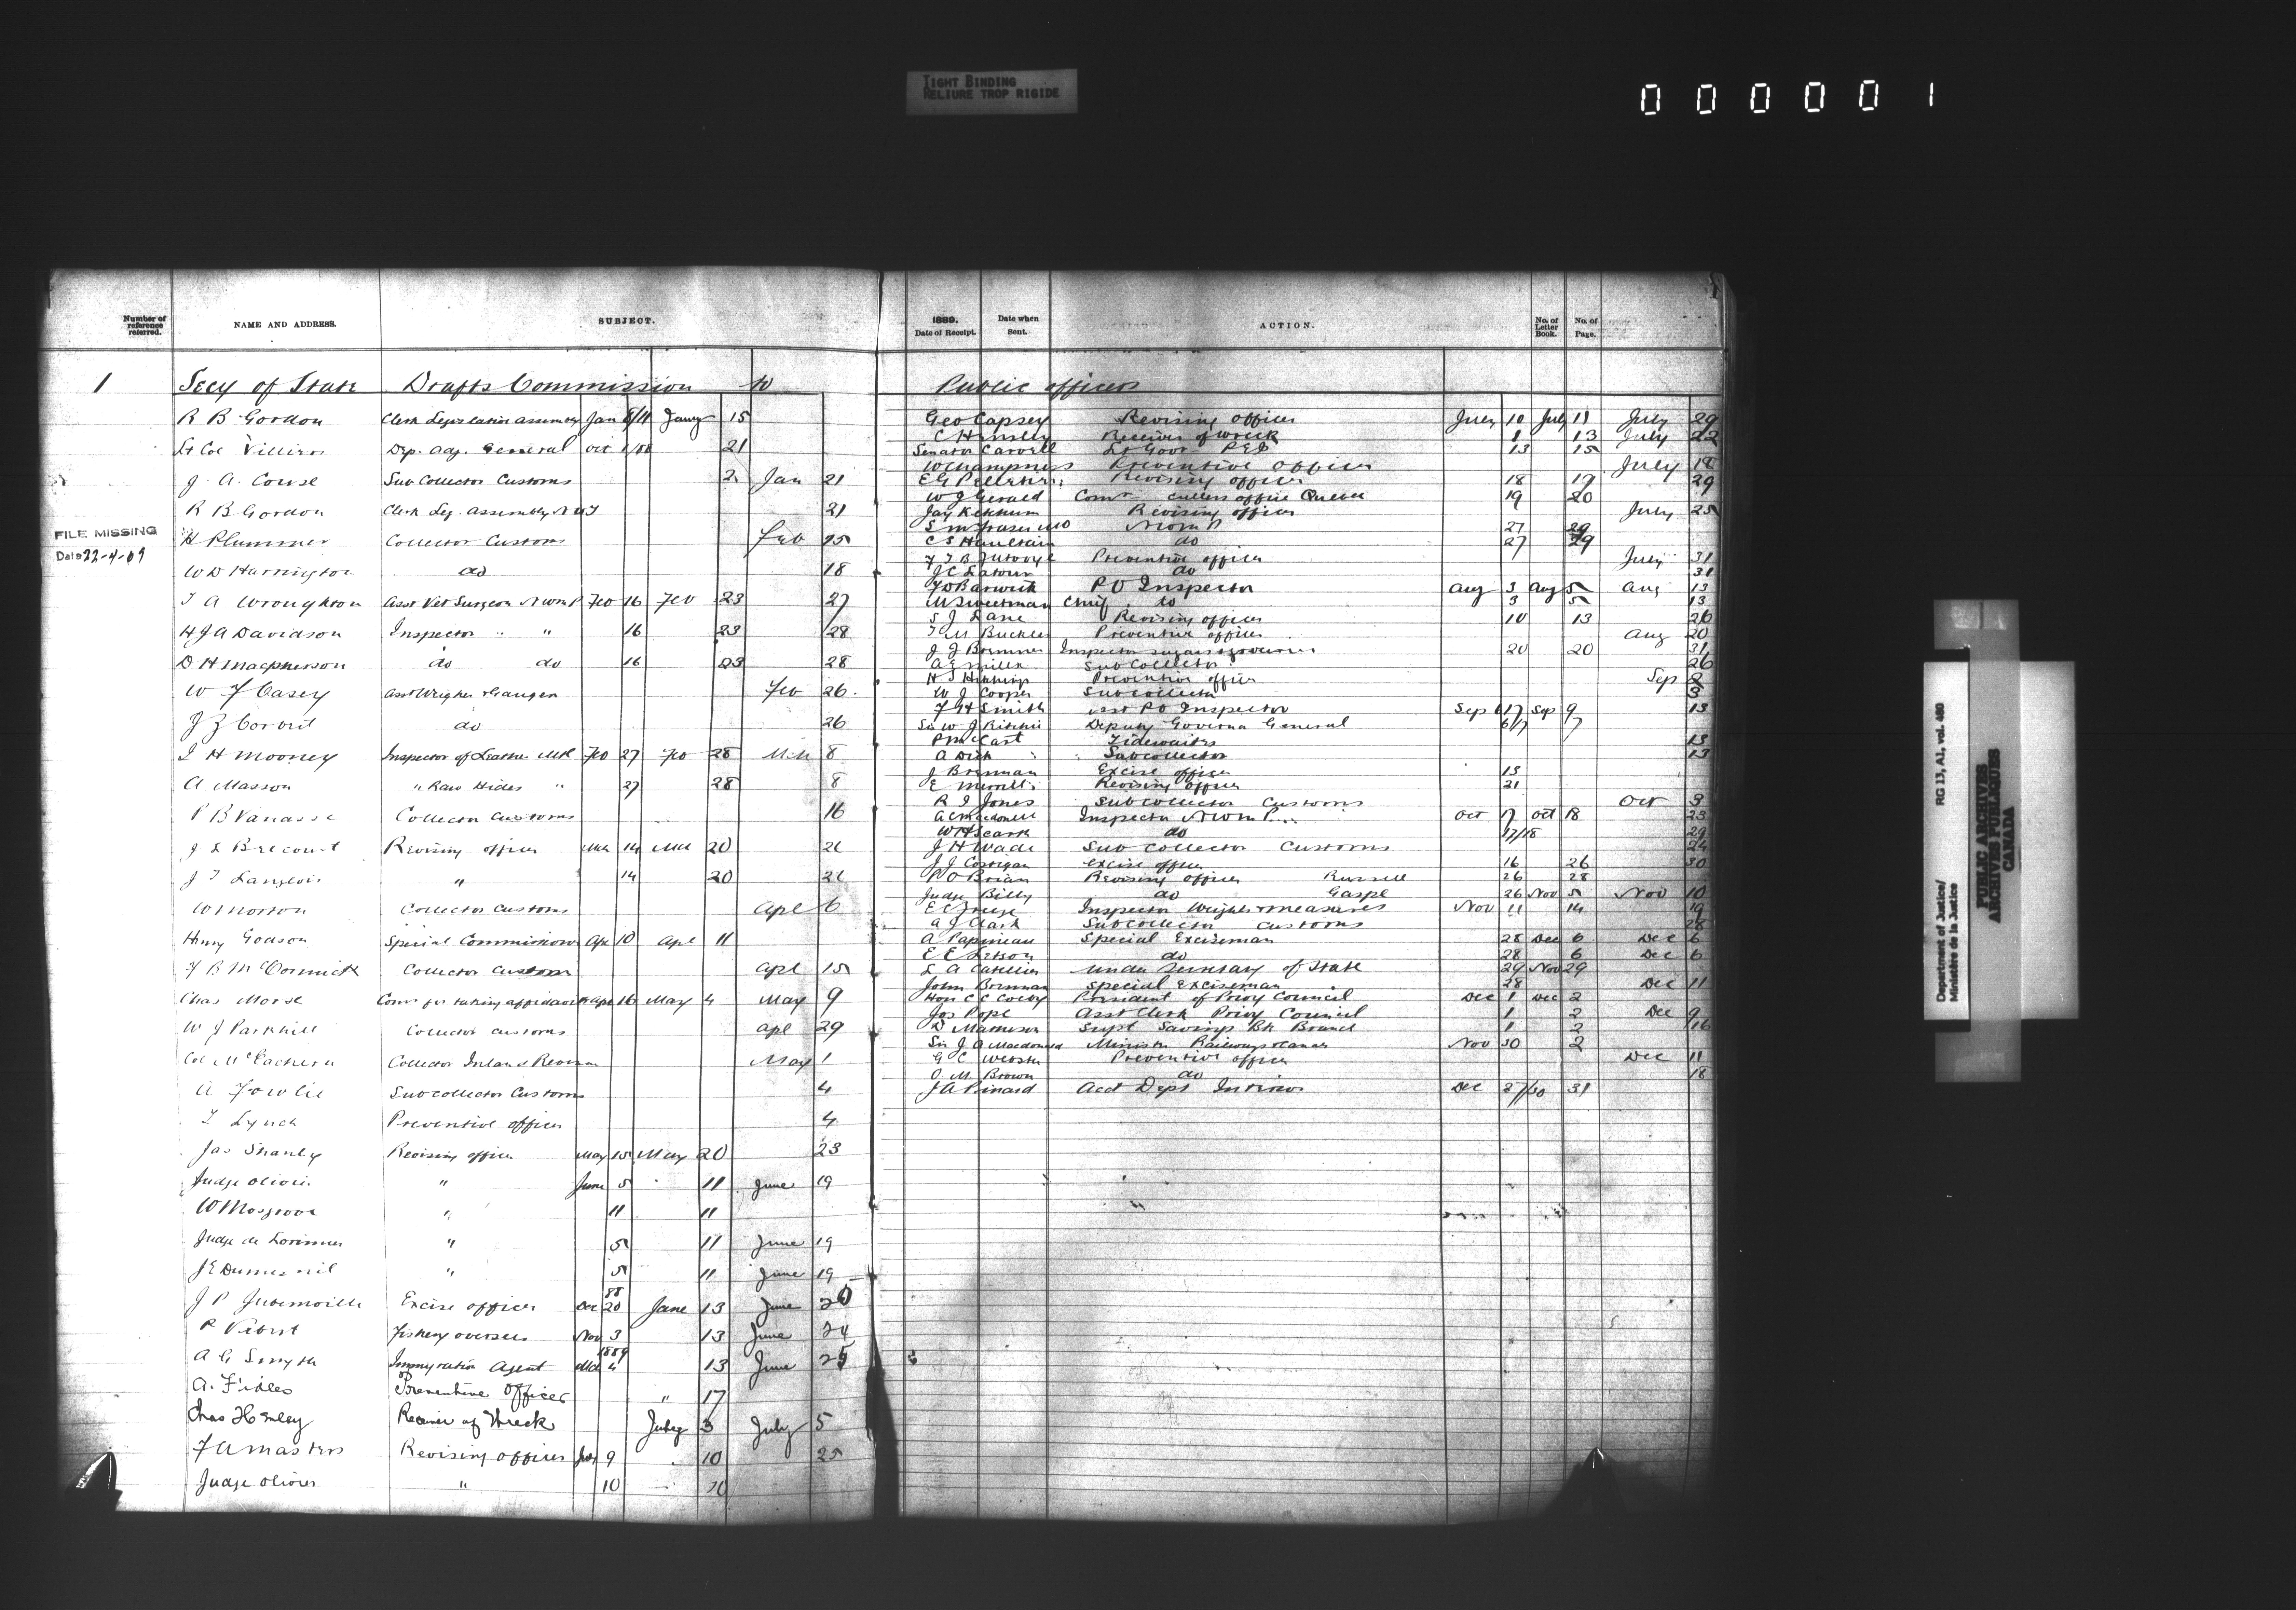 TIGHT BINDING
RELIURE TROP RIGIDE
000001
Number of reference referred. NAME AND ADDRESS. SUBJECT.
1 Secy of State Drafts Commission to
R B Gordon Clerk Legislative Assembly Jan 8/11 Jany 15
Lt Col Villiers Dep. Adj. General Oct 1/88 21
J. A. Couse Sub Collector Customs 2 Jan 21
R B Gordon Clerk Leg. Assembly N W T 21
FILE MISSING
Date 22-4-09
H Plummer Collector Customs Feb 15
W D Harrington do 18
T A Wroughton Asst Vet Surgeon N W M P Feb 16 Feb 23 27
H J A Davidson Inspector " " 16 23 28
D H Macpherson do do 16 23 28
W F Casey Asst Weigher & Gauger Feb 26
J Z Corbeil do 26
J H Mooney Inspector of Leather Mtl Feb 27 Feb 28 Mch 8
A Masson " Raw Hides " 27 28 8
P B Vanasse Collector Customs 16
J L Brecourt Revising officer Mch 14 Mch 20 26
J T Langlois " 14 20 26
W Morton Collector Customs Apl 6
Henry Godson Special Commissioner Apl 10 Apl 11
J B McCormick Collector Customs Apl 15
Chas Morse Comr for taking affidavits Apl 16 May 4 May 9
W J Parkhill Collector Customs Apl 29
Col McEachern Collector Inland Revenue May 1
A Fowlie Sub Collector Customs 4
T Lynch Preventive officer 4
Jas Shanly Revising officer May 15 May 20 23
Judge Olivier " June 5 11 June 19
W Mosgrove " 11 11
Judge de Lorimier " 5 11 June 19
J E Dumesnil " 5 11 June 19
J P Jubenville Excise officer Dec 88 20 June 13 June 20
P Vibert Fishery overseer Nov 3 13 June 24
A G Smyth Immigration Agent 1889 Mch 4 13 June 25
A. Fidles Preventive Officer " 17
Chas Hemley Receiver of Wreck July 3 July 5
F A Masters Revising officer July 9 10 25
Judge Olivier " 10 10
1889. Date of Receipt. Date when Sent. ACTION. No. of Letter Book. No. of Page.
Public officers
Geo Capsey Revising officer July 10 July 11 July 29
C Hemsley Receiver of Wreck 1 13 July 22
Senator Carvell Lt Govr P E I 13 15
W Champness Preventive Officer July 18
E G Pelletier Revising officer 18 19 29
W J Gerald Comr cullers office Quebec 19 20
Jay Ketchum Revising officer July 25
S M Fraser MD N W M P 27 29
C S Haultain do 27 29
Preventive officer July 31
J C Latour do 31
Barwick P O Inspector Aug 3 Aug 5 Aug 13
M Sweetman Chief do 3 5 13
S J Lane Revising officer 10 13 26
T M Buckles Preventive officer Aug 20
J J Bremner Inspector 20 20 31
A E Miller Sub Collector 26
Preventive officer Sep 2
W J Cooper Sub Collector 3
F H Smith Asst P O Inspector Sep 6/7 Sep 9 13
Sir W J Ritchie Deputy Governor General 6/7 7
P McCart Tidewaiter 13
A Dick Sub Collector 13
J Brennan Excise officer 13
E Merrill Revising officer 21
R J Jones Sub Collector Customs Oct 3
A C Macdonell Inspector N W M P Oct 17 Oct 18 23
W H Scarth do 17/18 29
J H Wade Sub Collector Customs 24
J J Costigan Excise officer 16 26 30
P O Brian Revising officer Russell 26 28
Judge Billy do Gaspe 26 Nov 5 Nov 10
E C Freeze Inspector Weights & Measures Nov 11 14 19
A J Clark Sub Collector Customs 28
A Papineau Special Exciseman 28 Dec 6 Dec 6
E E Letson do 28 6 Dec 6
L A Catellier Under Secretary of State 29 Nov 29
John Brennan Special Exciseman 28 Dec 11
Hon C C Colby President of Privy Council Dec 1 Dec 2
Jos Pope Asst Clerk Privy Council 1 2 Dec 9
D Matheson Supt Savings Bk Branch 1 2 16
Sir J A Macdonald Minister Railways & Canals Nov 30 2
G C Webster Preventive officer Dec 11
O M Brown do 18
J A Pinard Acct Dept Interior Dec 27/30 31
Department of Justice/ RG 13, A1, vol. 480
Ministère de la Justice
PUBLIC ARCHIVES
ARCHIVES PUBLIQUES
CANADA